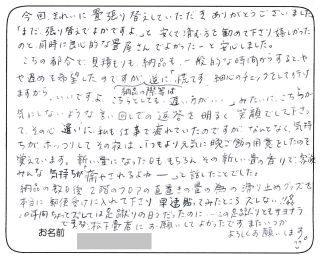 今回、きれいに畳張り替えていただきありがとうございました
「まだ、張り替えてよかですよ」と安くて済む方を勧めて下さり嬉しかった
のと同時に良心的な畳屋さんでよかったーと安心しました。
こちらの都合で見積りも、納品も、一般的な時間からすると、や
や遅めを希望したのですが、逆に「慌てず、細心のチェックをして行り
ますから、いいですよ 納品の際等は
こちらとしても、遅い方がいい…」みたいに、こちらが
気にしないような言い回しでの返答を明るく笑顔で下さっ
て、その心遣いに、私も仕事で疲れていたのですが、なんとなく、気持
ちがホッコリしてその夜は、いつもより元気に晩ご飯の用意をしたのを
覚えています。新しい畳になった日も、もちろん、その新しい畳の香りで、家族
みんな気持ちが癒やされるよねー」と話したことでした。
納品の数日後2階のフロアの直置きの畳の為の滑り止めグッズを
本当に郵便受けに入れて下さり早速貼ってみたところズレない!!
10年間ちょっとズレては足蹴りの日々だったのに…この足蹴りともサヨナラ
できる、松下畳店にお願いしてよかったですまたいつか
よろしくお願いします。
お名前